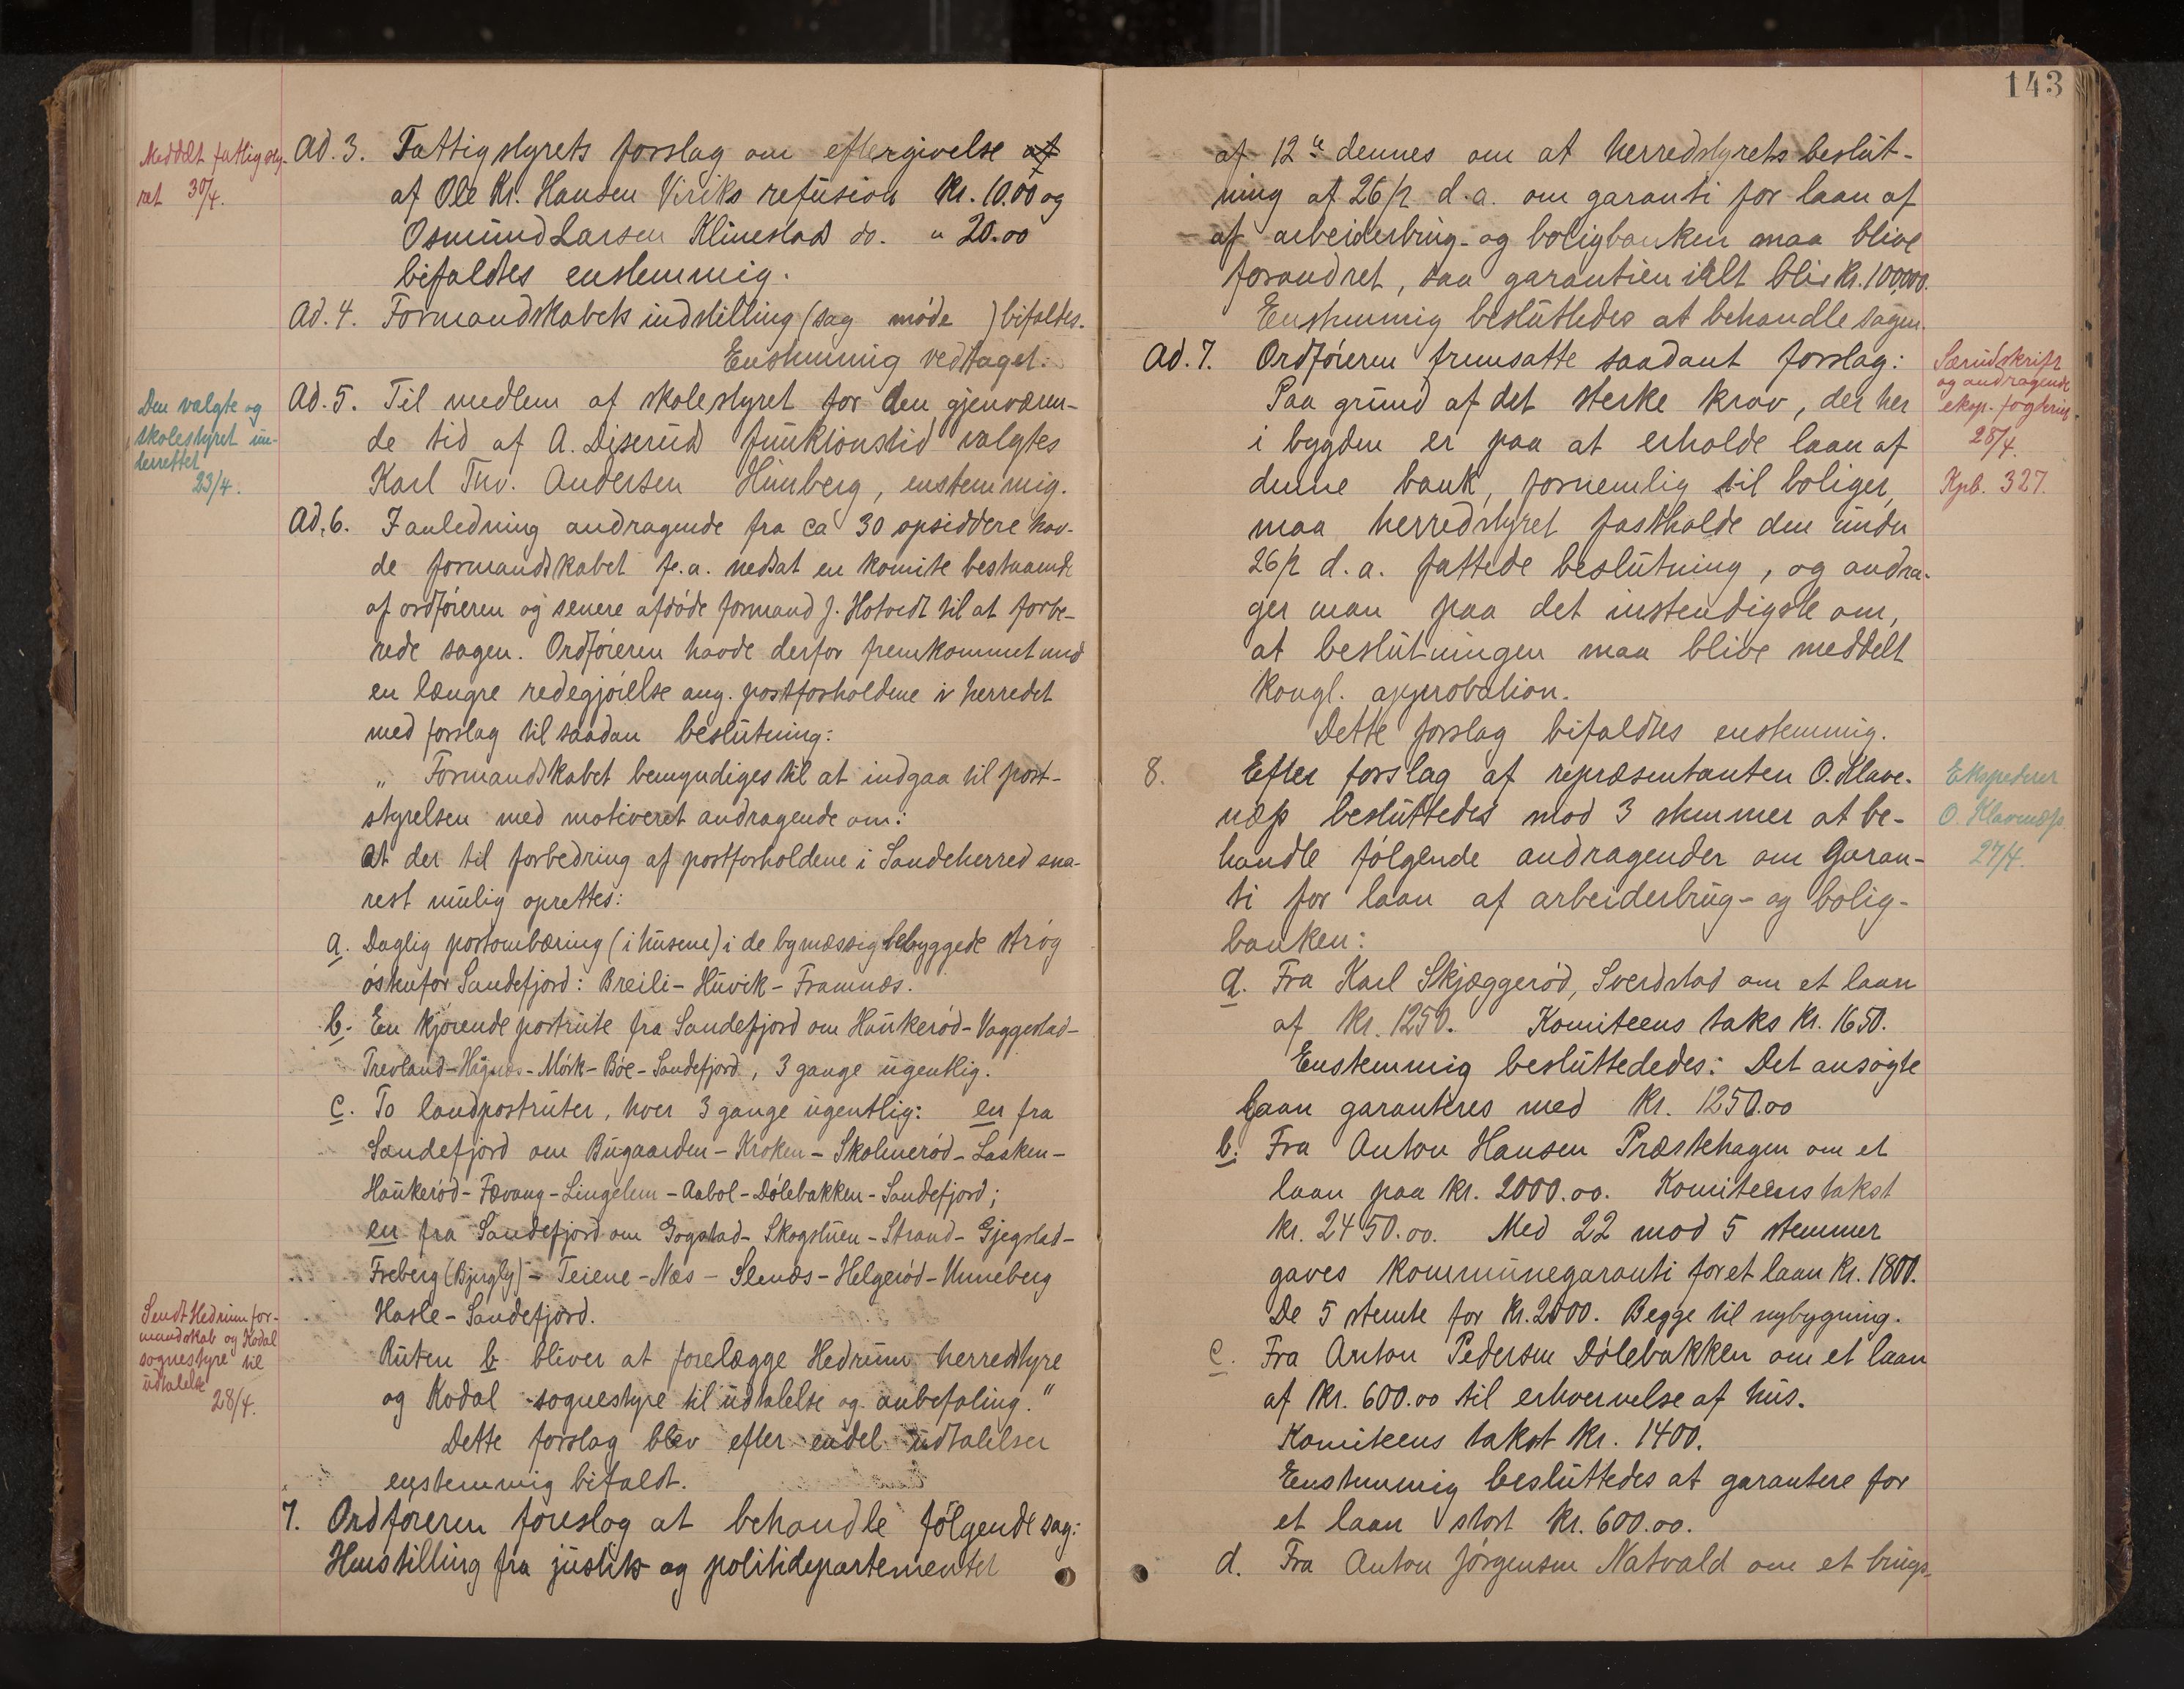 Meddelt fattigsty-
ret 30/4.
Ad. 3. Fattigstyrets forslag om eftergivelse af
af Ole Kr. Hansen Viriks refusion Kr. 10.00 og
Osmund Larsen Klinestad do. " 20.00
bifaldtes enstemmig.
Ad. 4. Formandskabets indstilling (sag møde ) bifaldtes.
Enstemmig vedtaget.
Den valgte og
skolestyret un-
derrettet
23/4.
Ad. 5. Til medlem af skolestyret for den gjenværen-
de tid af A. Diserud funktionstid valgtes
Karl Thv. Andersen Himberg, enstemmig.
Ad. 6. I anledning andragende fra ca 30 opsiddere hav-
de formandskabet f.a. nedsat en komite bestaaende
af ordføreren og senere afdøde formand J. Hotvedt til at forbe-
rede sagen. Ordføreren havde derfor fremkommet med
en længre redegjørelse ang. postforholdene i herredet
med forslag til saadan beslutning:
„ Formandskabet bemyndiges til at indgaa til post-
styrelsen med motiveret andragende om:
at der til forbedring af postforholdene i Sandeherred sna-
rest mulig oprettes:
a. Daglig postombæring (i husene) i de bymæssig bebyggede strøg
østenfor Sandefjord: Breili - Huvik - Framnæs.
b. En kjørende postrute fra Sandefjord om Haukerød - Vaggestad -
Trevland - Hagnæs - Mørk - Bøe - Sandefjord, 3 gange ugentlig.
c. To landpostruter, hver 3 gange ugentlig: en fra
Sandefjord om Bugaarden - Kroken - Skolmerød - Lasken -
Haukerød - Fævang - Lingelem - Aabol - Dølebakken - Sandefjord;
en fra Sandefjord om Gogstad - Skogstuen - Strand - Gjegstad -
Freberg (Bjergly) - Teiene - Næs - Slenæs - Helgerød - Unneberg
Hasle - Sandefjord.
Sendt Hedrum for-
mandskab og Kodal
sognestyre til
udtalelse
28/4.
Ruten b bliver at forelægge Hedrum herredstyre
og Kodal sognestyre til udtalelse og anbefaling."
Dette forslag blev efter endel udtalelser
enstemmig bifaldt.
7. Ordføreren foreslog at behandle følgende sag:
Henstilling fra justits og politidepartementet
143
af 12te dennes om at herredstyrets beslut-
ning af 26/2 d.a. om garanti for laan af
af arbeiderbrug- og boligbanken maa blive
forandret, saa garantien ialt blir Kr. 100,000.
Enstemmig besluttedes at behandle sagen.
Ad. 7. Ordføreren fremsatte saadant forslag:
Paa grund af det sterke krav, der her
i bygden er paa at erholde laan af
denne bank, fornemlig til boliger,
maa herredstyret fastholde den under
26/2 d.a. fattede beslutning, og andra-
ger man paa det instendigste om,
at beslutningen maa blive meddelt
kongl. approbation.
Dette forslag bifaldtes enstemmig.
Særudskrift
og andragende
eksp.
28/4.
Kpb. 327.
8. Efter forslag af repræsentanten O. Klave-
næss besluttedes mod 3 stemmer at be-
handle følgende andragender om Garan-
ti for laan af arbeiderbrug- og bolig-
banken:
Ekspederet
O. Klavenæss
27/4.
a. Fra Karl Skjæggerød, Sverdstad om et laan
af Kr. 1250. Komiteens taks Kr. 1650.
Enstemmig besluttededes: Det ansøgte
Laan garanteres med Kr. 1250.00
b. Fra Anton Hansen Præstehagen om et
laan paa Kr. 2000.00. Komiteens takst
Kr. 2450.00. Med 22 mod 5 stemmer
gaves kommunegaranti for et laan Kr. 1800.
De 5 stemte for Kr. 2000. Begge til nybygning.
c. Fra Anton Pedersen Dølebakken om et laan
af Kr. 600.00 til erhvervelse af hus.
Komiteens takst Kr. 1400.
Enstemmig besluttedes at garantere for
et laan stort Kr. 600.00.
d. Fra Anton Jørgensen Natvald om et brugs-